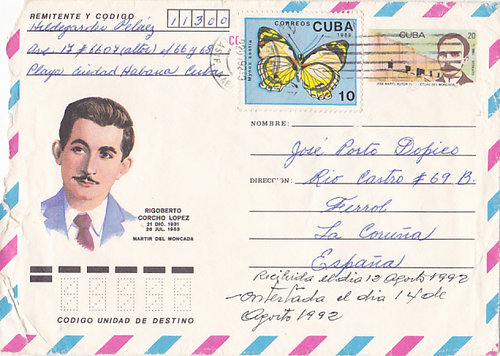 REMITENTE Y CODIGO 11300
Hildegardee Peláez
Ave 17 # 6607 (altos) e/ 66 y 68
Playa Ciudad Habana Cuba
CORREOS CUBA
1989
10
CUBA 20
JOSE MARTI, AUTOR
DEL MONCADA
NOMBRE:
José Porto Dopico
DIRECCION: Rio Castro # 69 B.
Ferrol
La Coruña
España
Recibida el dia 12 Agosto 1992
Contestada el dia 14 de
Agosto 1992
RIGOBERTO
CORCHO LOPEZ
21 DIC. 1931
26 JUL. 1953
MARTIR DEL MONCADA
CODIGO UNIDAD DE DESTINO